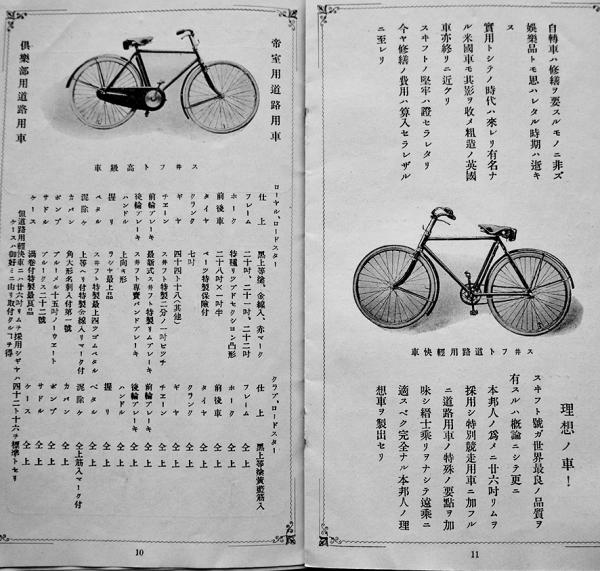 帝室用道路用車
倶樂部用道路用車
スヰフト高級車
ローヤル、ロードスター
仕上 黒上等塗、金線入、赤マーク
フレーム 二十吋、二十一吋、二十二吋
ホーク 特種リツドセクシヨン凸形
前後車 二十八吋×一吋半
タイヤ ペーツ特製保險付
クランク 七吋
ギヤ 四十四ト十八(其他)
チエーン スヰフト特製二分ノ一吋ピツチ
前輪ブレーキ 最新式スヰフト特製リムブレーキ
後輪ブレーキ スヰフト專賣バンドブレーキ
ハンドル 上向キ形
握リ ラシヤ最上品
ペタル スヰフト特製最上四ツゴムペタル
泥除ケ 上等ヘリ付特製金線入リマーク付
カバン 角大形名刺入付第一號
ポンプ ブルーメル十五吋ノーウエート
サドル ブルークス二十二號
ケース 渦卷付特製最良品
但道路用輕快車ニハ廿六吋リムヲ採用シギヤハ四十二ト十六ヲ標準トセリ
ケースハ御好ミニ由リ取付クルコヲ得
クラブ、ロードスター
仕上 黒上等塗黄藍筋入
フレーム 仝上
ホーク 仝上
前後車 仝上
タイヤ 仝上
クランク 仝上
ギヤ 仝上
チエーン 仝上
前輪ブレーキ 仝上
後輪ブレーキ 仝上
ハンドル 仝上
握リ 仝上
ペタル 仝上
泥除ケ 仝上筋入マーク付
カバン 仝上
ポンプ 仝上
サドル 仝上
ケース 仝上
10
自轉車ハ修繕ヲ要スルモノニ非ズ
娯樂品トモ思ハレタル時期ハ逝キ
ス
實用トシテノ時代ハ來レリ有名ナ
ル米國車モ其影ヲ收メ粗造ノ英國
車亦終リニ近ケリ
スヰフトノ堅牢ハ證セラレタリ
今ヤ修繕ノ費用ハ算入セラレザル
ニ至レリ
スヰフト道路用輕快車
理想ノ車!
スヰフト號ガ世界最良ノ品質ヲ
有スルハ概論ニシテ更ニ
本邦人ノ爲メニ廿六吋リムヲ
採用シ特別競走用車ニ加フル
ニ道路用車ノ特殊ノ要點ヲ加
味シ縉士乘リヲナシテ遠乘ニ
適スベク完全ナル本邦人ノ理
想車ヲ製出セリ
11